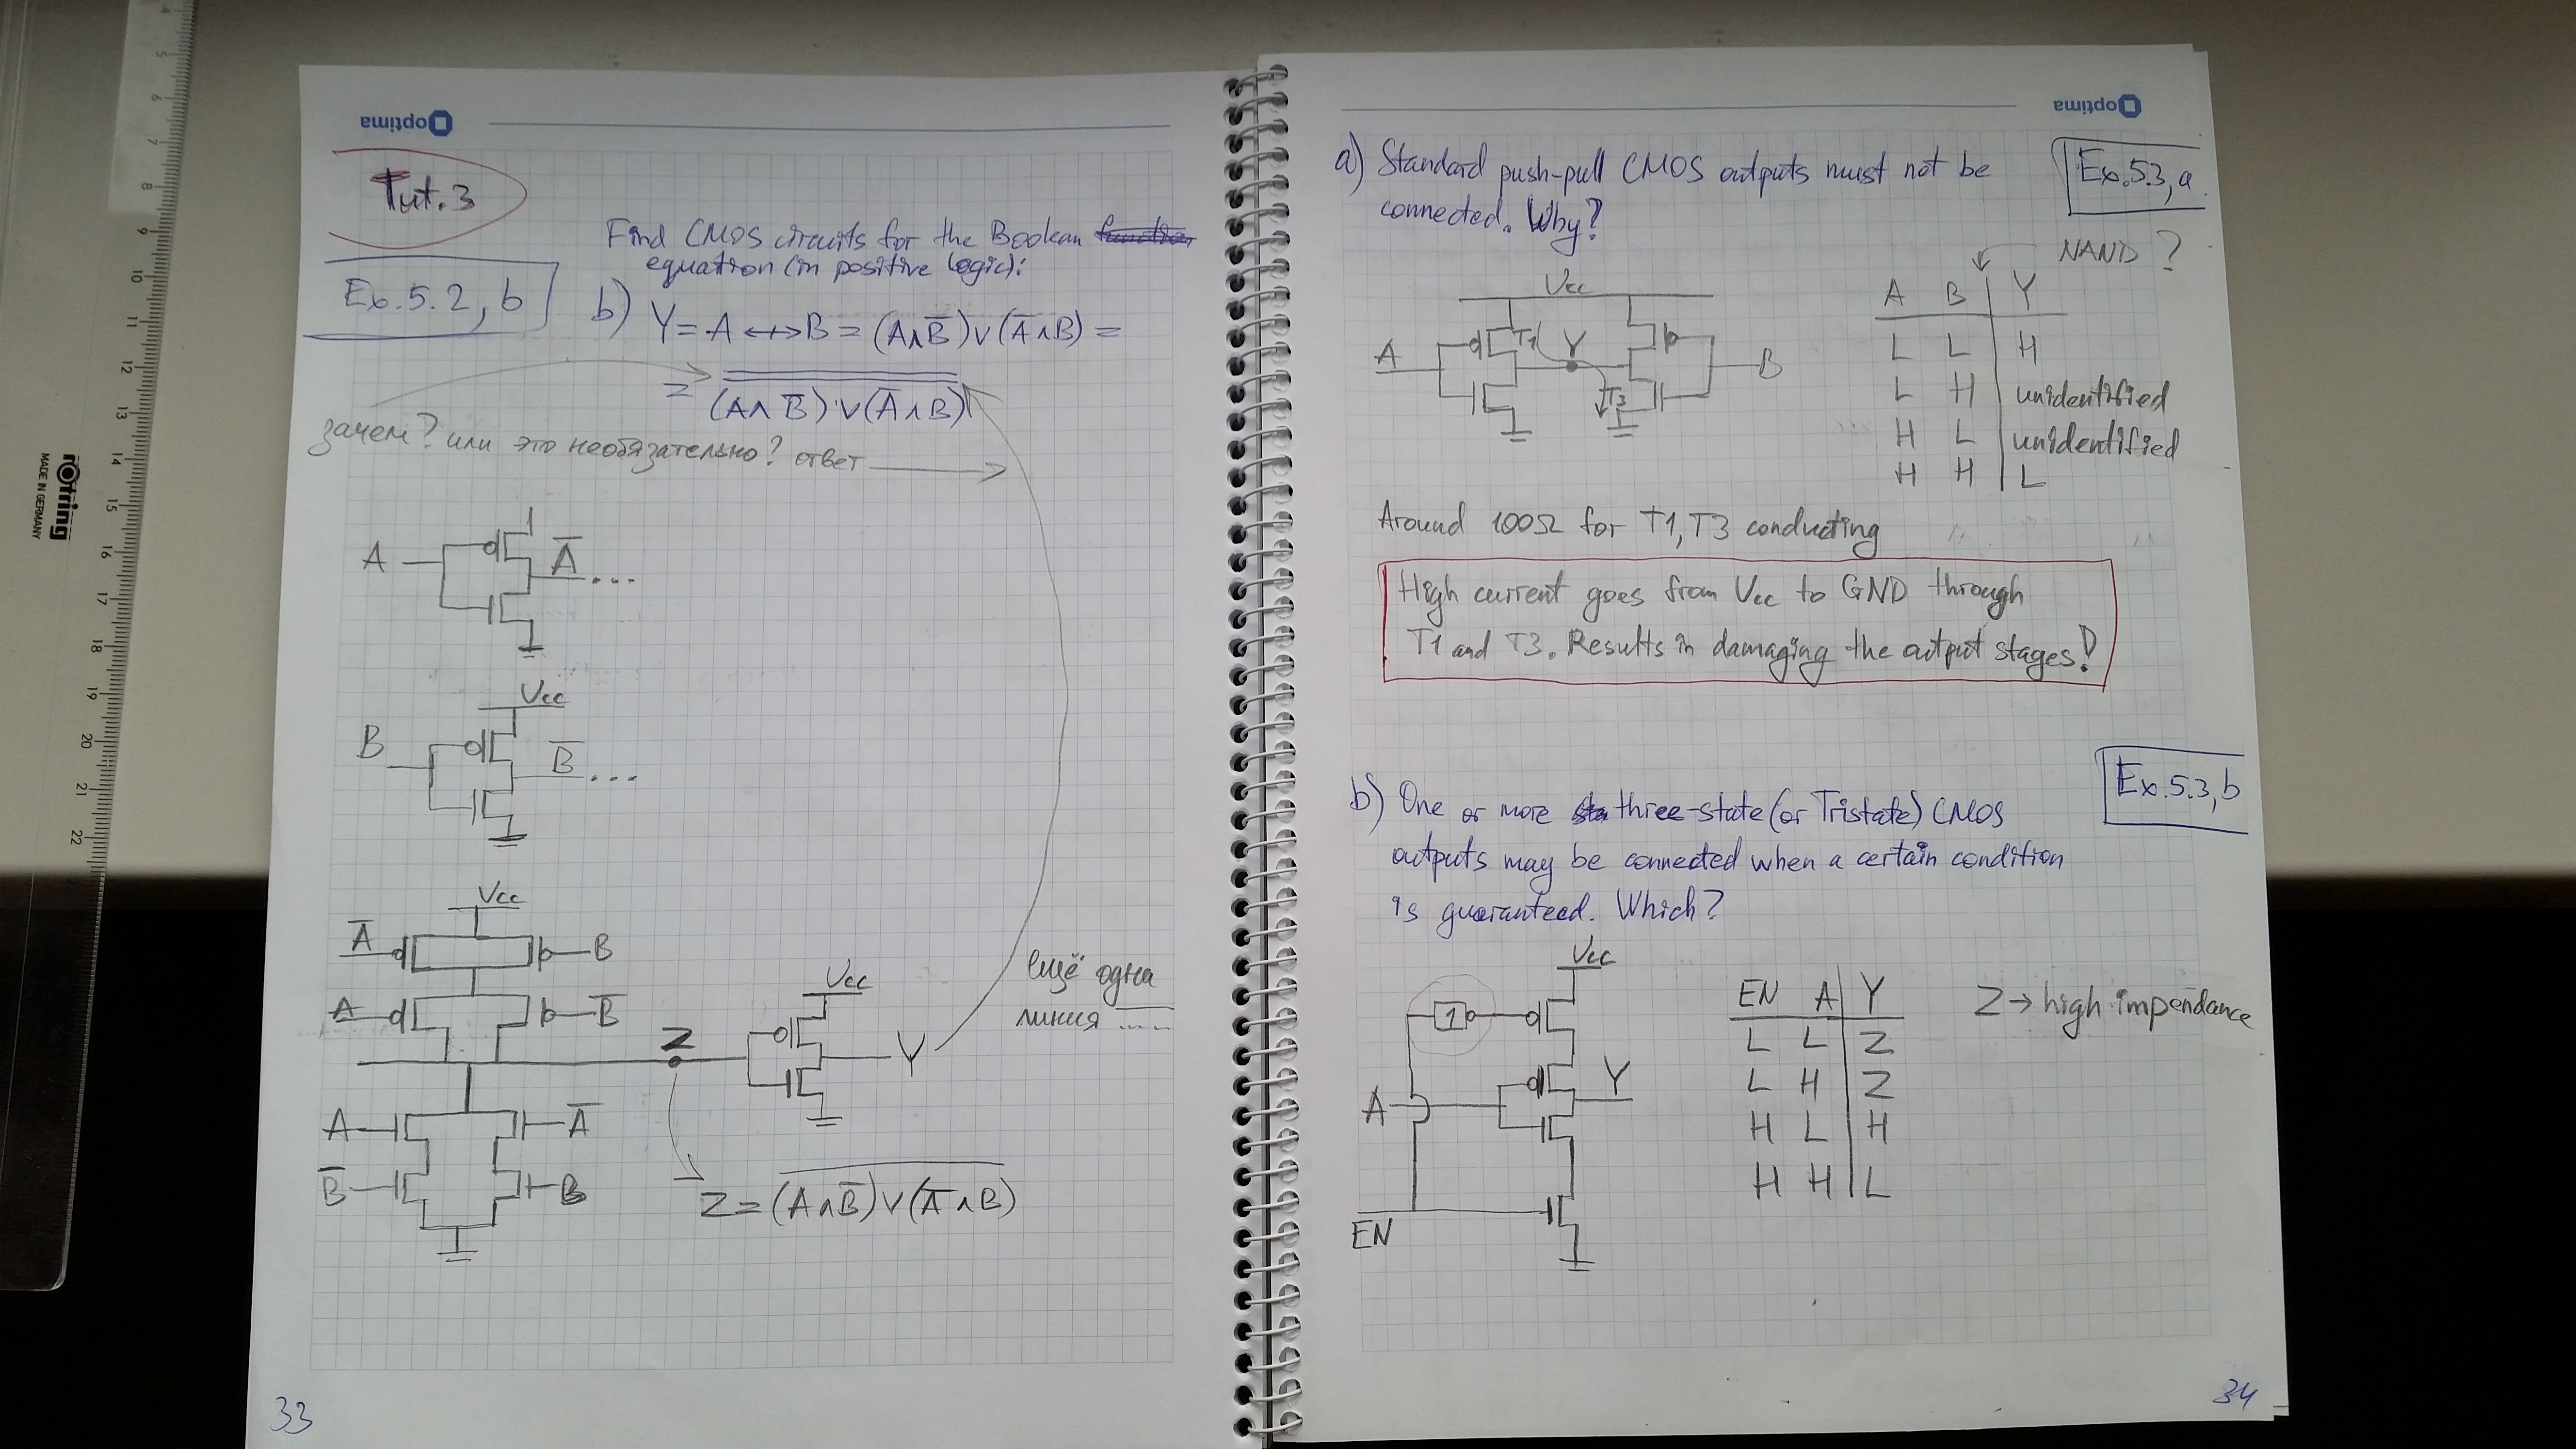 optima
Tut. 3
Find CMOS circuits for the Boolean function
equation (in positive logic):
Ex. 5.2, b
b) Y = A ↮ B = (A∧B̅)∨(A̅∧B) =
= (A∧B̅)∨(A̅∧B)
зачем? или это необязательно? ответ
A
A̅ ...
Vcc
B
B̅ ...
Vcc
A̅
B
A
B̅
Z
Vcc
Y
ещё одна
линия ....
A
A̅
B̅
B
Z = (A∧B̅)∨(A̅∧B)
33
optima
a) Standard push-pull CMOS outputs must not be
connected. Why?
Ex. 5.3, a
NAND ?
Vcc
A
T1
Y
B
T3
A B Y
L L H
L H unidentified
H L unidentified
H H L
Around 100Ω for T1, T3 conducting
High current goes from Vcc to GND through
T1 and T3. Results in damaging the output stages!
Ex. 5.3, b
b) One or more three-state (or Tristate) CMOS
outputs may be connected when a certain condition
is guaranteed. Which?
Vcc
1
A
Y
EN
EN A Y
L L Z
L H Z
H L H
H H L
Z → high impendance
34
rotring
MADE IN GERMANY
4
5
6
7
8
9
10
11
12
13
14
15
16
17
18
19
20
21
22